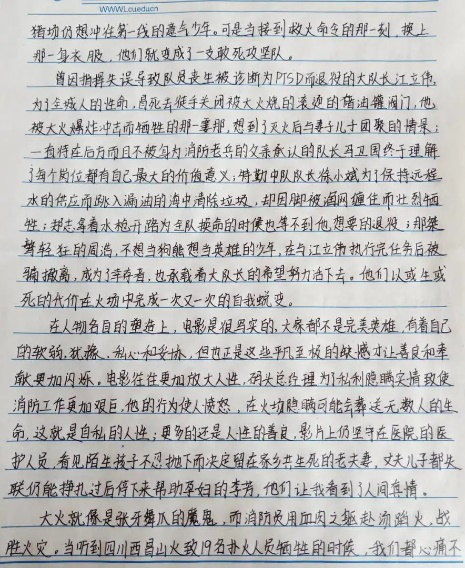 WWW.cueducn
猪场仍想冲在第一线的意气少年。可是当接到救火命令的那一刻，换上
那一身衣服，他们就变成了一支敢死攻坚队。
曾因指挥失误导致队员丧生被诊断为PTSD而退役的大队长江立伟，
为了全城人的性命，冒死去徒手关闭被大火烧的滚烫的储油罐阀门，他
被大火爆炸冲击而牺牲的那一霎那，想到了灭火后与妻子儿子团聚的情景；
一直待在后方而且不被身为消防老兵的父亲承认的队长马卫国终于理解
了每个岗位都有自己最大的价值意义；特勤中队队长徐小斌为了保持远程
水的供应而跳入漏油的海中清除垃圾，却因脚被渔网缠住而壮烈牺
牲；郑志拿着水枪开路为全队换命的时候也等不到他想要的退役；那桀
骜轻狂的周浩，不想当狗熊想当英雄的少年，在与江立伟执行完任务后被
骗撤离，成为了幸存者，也承载着大队长的希望努力活下去。他们以或生或
死的代价在火场中完成一次又一次的自我蜕变。
在人物各自的塑造上，电影是很写实的，大家都不是完美英雄，有着自己
的软弱、犹豫、私心和妥协，但也正是这些平凡至极的缺憾才让善良和奉
献更加闪烁。电影往往更加放大人性，码头总经理为了私利隐瞒实情致使
消防工作更加艰巨，他的行为使人愤怒，在火场隐瞒可能会葬送无数人的生
命，这就是自私的人性；更多的还是人性的善良，影片上仍坚守在医院的医
护人员，看见陌生孩子不忍抛下而决定留在家乡共生死的老夫妻，丈夫儿子都失
联仍能挣扎过后停下来帮助孕妇的李芳，他们让我看到了人间真情。
大火就像是张牙舞爪的魔鬼，而消防员用血肉之躯赴汤蹈火，战
胜火灾。当听到四川西昌山火致19名扑火人员牺牲的时候，我们都心痛不